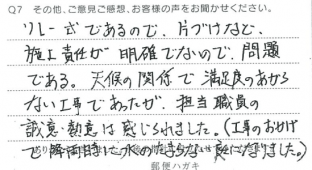 Q7 その他、ご意見ご感想、お客様の声をお聞かせください。
リレー式であるので、片づけなど、
施工責任が明確でないので、問題
である。天候の関係で満足度のあがら
ない工事であったが、担当職員の
誠意・熱意は感じられました。(工事のおかげ
で降雨時に水のたまらない 庭になりました。)
郵便ハガキ